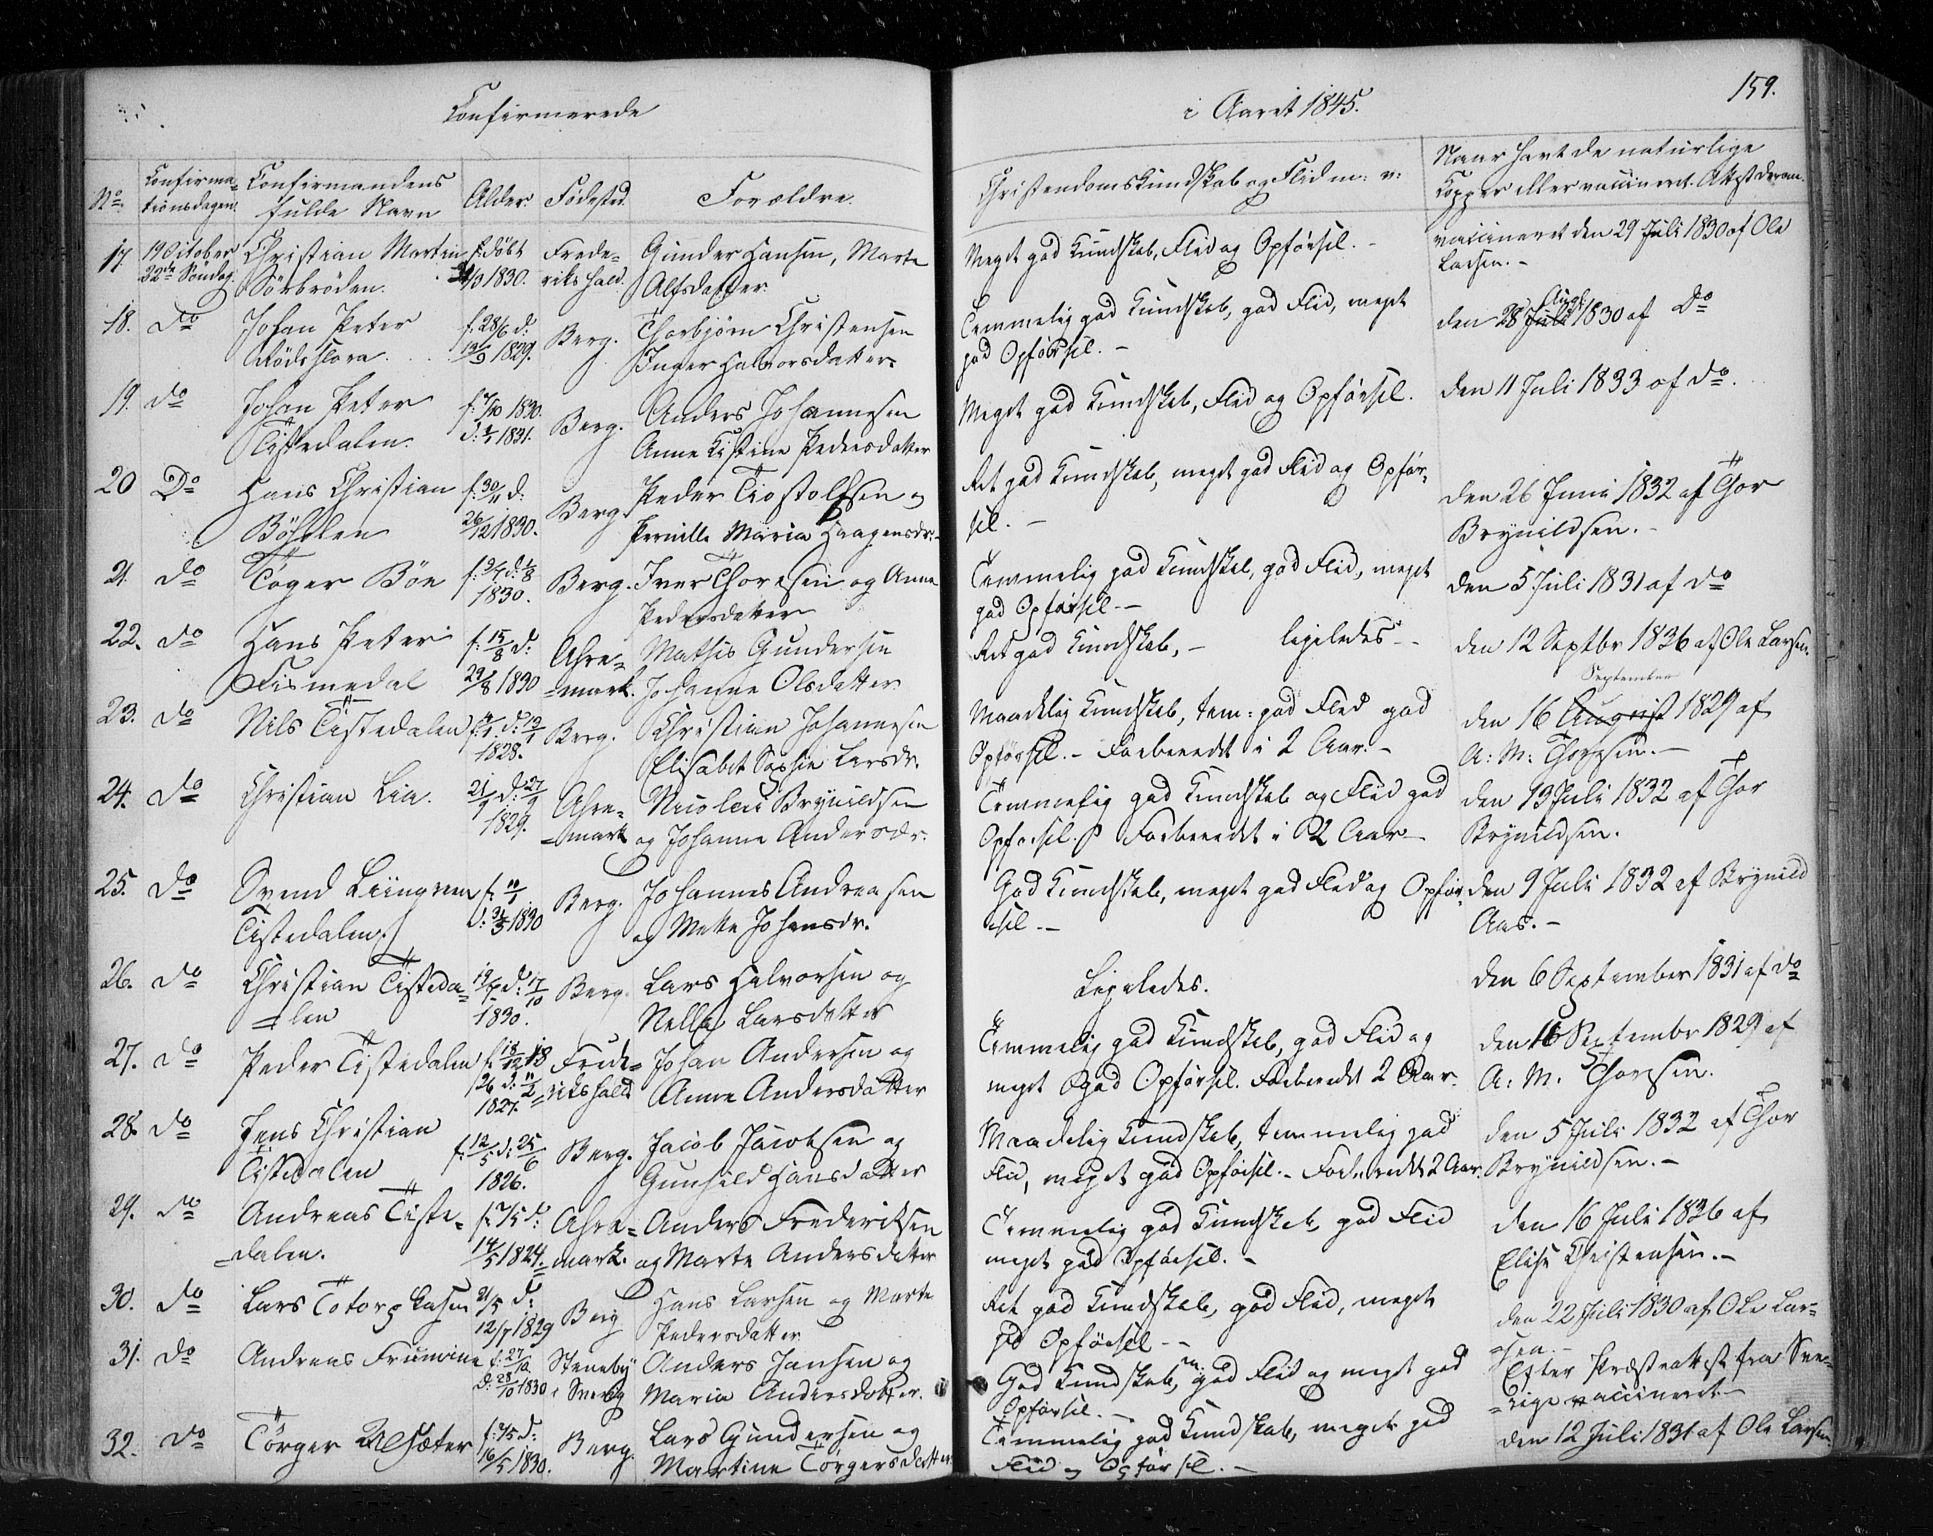 Confirmerede
i Aaret 1845.
159.
No
Confirma-
tionsdagen.
Confirmandens
fulde Navn
Alder.
Fødested.
Forældre.
Christendomskundskab og Flid m: v:
Naar havt de naturlige
Kopper eller vaccineret. Attest derom.
17. 19 October
22de Søndag.
Christian Martin
Sørbrøden.
f. døbt
1830.
Frede-
rikshald.
Gunder Hansen, Marte
Alfsdatter
Meget god Kundskab, Flid og Opførsel. -
vaccineret den 29 Juli 1830 af Ole
Larsen. -
18. Do
Johan Peter
f. 28/6 d:
13/9 1829.
Berg.
Thorbjørn Christensen
Inger Halvorsdatter
Temmelig god Kundskab, god Flid, meget
god Opførsel. -
den 28 Aug. 1830 af Do
19. do
Johan Peter
Tistedalen.
f. 7/10 1830.
d: 1831.
Berg.
Anders Johannesen
Anne Kistine Pedersdatter
Meget god Kundskab, Flid og Opførsel.
den 11 Juli 1833 af do.
20 Do
Hans Christian
f. 30/11 d:
26/12 1830.
Berg.
Peder Tiostolfsen og
Pernille Maria Haagensdr.
Ret god Kundskab, meget god Flid og Opfør-
sel. -
den 26 Juni 1832 af Thor
Brynildsen. -
21. do
Toger Bøe
1830.
Berg.
Iver Thoresen og Anne
Pedersdatter
Temmelig god Kundskab, god Flid, meget
god Opførsel. -
den 5 Juli 1831 af do
22. do
Hans Peter
Fismedal
f: 15/8 d:
29/8 1830
Ahre-
-mark.
Mathis Gundersen
Johanne Olsdatter
Ret god Kundskab, - ligeledes -
den 12 Septbr 1836 af Ole Larsen.
23. do
Nils Tistedalen
1828.
Berg.
Christian Johannesen
Elisabet Sophie Larsdr.
Maadelig Kundskab, tem: god Flid god
Opførsel. - Forberedt i 2 Aar. -
September
den 16 August 1829 af
A: M: Thoresen. -
24. do
Christian Lia.
1829.
Ahre-
-mark
Nicolai Brynildsen
og Johanne Andersdr.
Temmelig god Kundskab og Flid god
Opførsel. Forberedt i 2 Aar -
den 13 Juli 1832 af Thor
Brynildsen.
25. do
Svend
Tistedalen.
1830
Berg.
Johannes Andreasen
og Mette Johansdr.
God Kundskab, meget god Flid og Opfør-
sel. -
den 9 Juli 1832 af Brynild
Aas. -
26. do
Christian Tisteda-
-len
d: 17/10
1830.
Berg.
Lars Halvorsen og
Nella Larsdatter
Ligeledes.
den 6 September 1831 af do
27. do
Peder Tistedalen
f. 18/12 18
26 d: 11/2
1827.
Frede-
-rikshald
Johan Andersen og
Anne Andersdatter
Temmelig god Kundskab, god Flid og
meget god Opførsel. Forberedt 2 Aar.
den 16 September 1829 af
A: M. Thoresen.
28. do
Jens Christian
Tistedalen
f: 12/5 d: 25/6
1826.
Berg.
Jacob Jacobsen og
Gunhild Hansdatter
Maadelig Kundskab, temmelig god
Flid, meget god Opførsel. - Forberedt 2 Aar.
den 5 Juli 1832 af Thor
Brynildsen. -
29. do
Andreas Tiste-
-dalen.
14/5 1824.
Ahre-
-mark.
Anders Frederiksen
og Marte Andersdatter
Temmelig god Kundskab, god Flid
meget god Opførsel. -
den 16 Juli 1836 af
Elise Christensen. -
30. do
Lars
12/7 1829
Berg
Hans Larsen og Marte
Pedersdatter
Ret god Kundskab, god Flid, meget
god Opførsel -
den 22 Juli 1830 af Ole Lar-
-sen. -
31. do
Andreas
f. 27/10
d: 28/10 1830
Steneby
i Sverig
Anders Jansen og
Maria Andersdatter.
God Kundskab, m. god Flid og meget god
Opførsel. -
Efter Præsteattest fra Sve-
-rige vaccineret -
32. do
Tørger
16/5 1830.
Berg.
Lars Gundersen og
Martine Tørgersdatter
Temmelig god Kundskab, meget god
Flid og Opførsel. -
den 12 Juli 1831 af Ole Larsen.